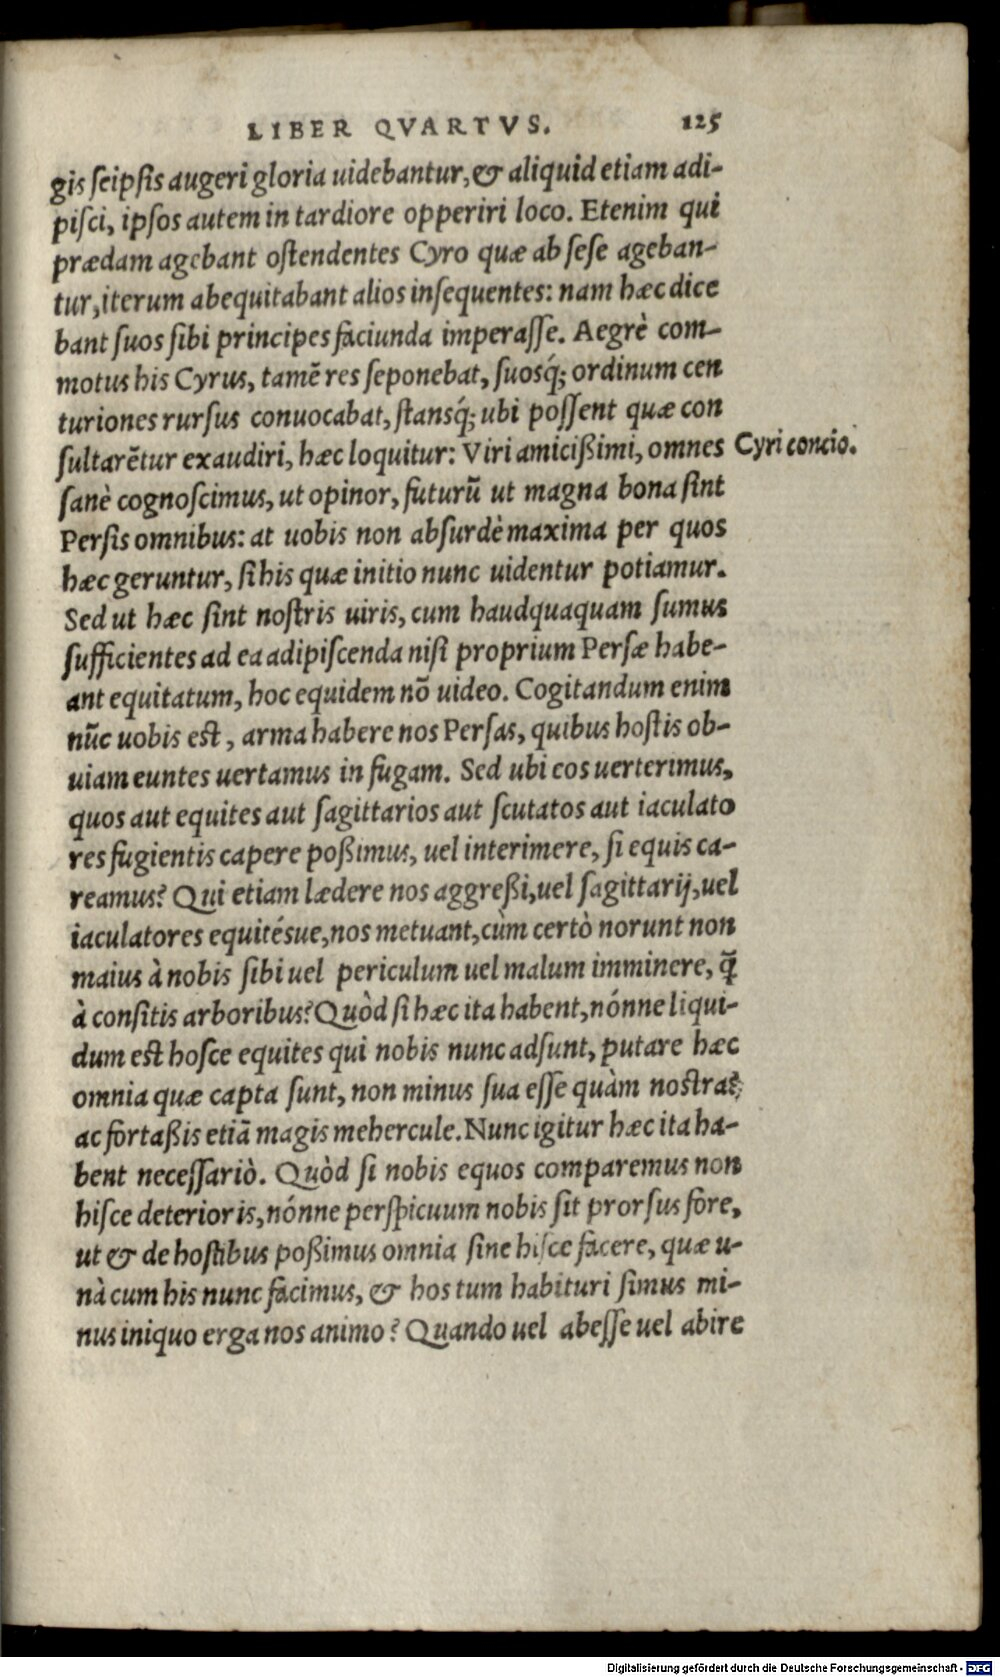 LIBER QVARTVS. 125
gis seipsis augeri gloria uidebantur, & aliquid etiam adi-
pisci, ipsos autem in tardiore opperiri loco. Etenim qui
prædam agebant ostendentes Cyro quæ ab sese ageban-
tur, iterum abequitabant alios insequentes: nam hæc dice
bant suos sibi principes faciunda imperasse. Aegrè com-
motus his Cyrus, tamẽ res seponebat, suosq́; ordinum cen
turiones rursus conuocabat, stansq́; ubi possent quæ con
sultarẽtur exaudiri, hæc loquitur: Viri amicißimi, omnes
Cyri concio.
sanè cognoscimus, ut opinor, futurũ ut magna bona sint
Persis omnibus: at uobis non absurdè maxima per quos
hæc geruntur, si his quæ initio nunc uidentur potiamur.
Sed ut hæc sint nostris uiris, cum haudquaquam sumus
sufficientes ad ea adipiscenda nisi proprium Persæ habe-
ant equitatum, hoc equidem nõ uideo. Cogitandum enim
nũc uobis est, arma habere nos Persas, quibus hostis ob-
uiam euntes uertamus in fugam. Sed ubi eos uerterimus,
quos aut equites aut sagittarios aut scutatos aut iaculato
res fugientis capere poßimus, uel interimere, si equis ca-
reamus? Qui etiam lædere nos aggreßi, uel sagittarij, uel
iaculatores equitésue, nos metuant, cùm certò norunt non
maius à nobis sibi uel periculum uel malum imminere, q̃
à consitis arboribus? Quòd si hæc ita habent, nónne liqui-
dum est hosce equites qui nobis nunc adsunt, putare hæc
omnia quæ capta sunt, non minus sua esse quàm nostra?
ac fortaßis etiã magis mehercule. Nunc igitur hæc ita ha-
bent necessariò. Quòd si nobis equos comparemus non
hisce deterioris, nónne perspicuum nobis sit prorsus fore,
ut & de hostibus poßimus omnia sine hisce facere, quæ u-
nà cum his nunc facimus, & hos tum habituri simus mi-
nus iniquo erga nos animo? Quando uel abesse uel abire
Digitalisierung gefördert durch die Deutsche Forschungsgemeinschaft - DFG